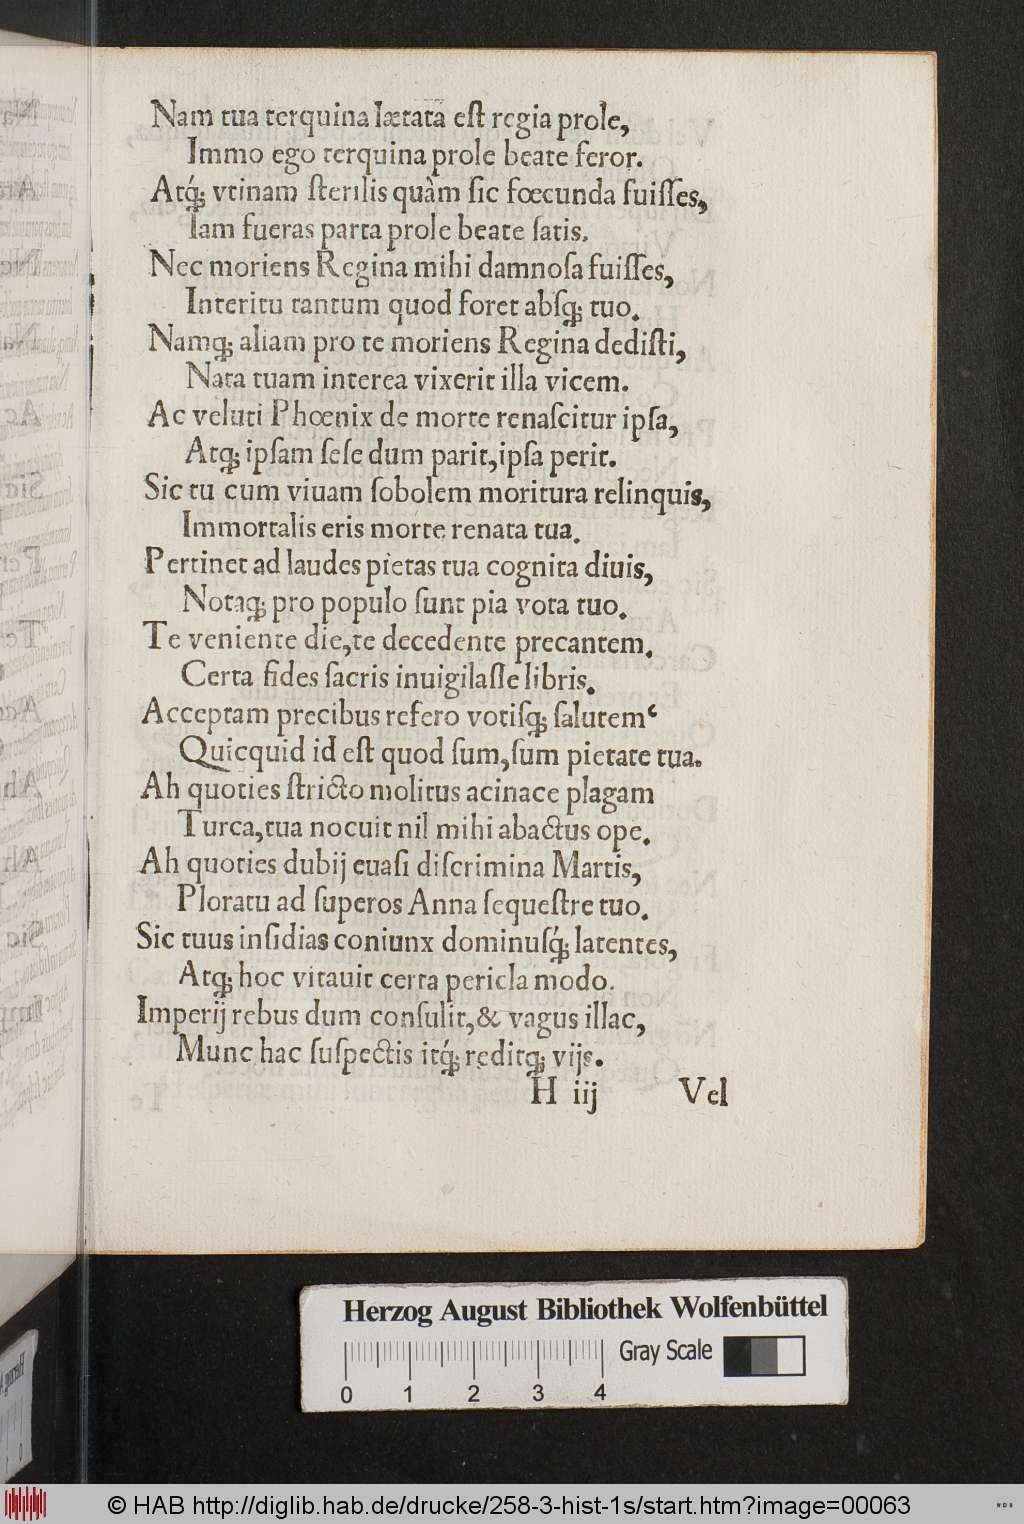 Nam tua terquina lætata eſt regia prole,
Immo ego terquina prole beate feror.
Atq́; vtinam ſterilis quàm ſic fœcunda fuiſſes,
Iam fueras parta prole beate ſatis.
Nec moriens Regina mihi damnoſa fuiſſes,
Interitu tantum quod foret abſq; tuo.
Namq; aliam pro te moriens Regina dediſti,
Nata tuam interea vixerit illa vicem.
Ac veluti Phœnix de morte renaſcitur ipſa,
Atq; ipſam ſeſe dum parit, ipſa perit.
Sic tu cum viuam ſobolem moritura relinquis,
Immortalis eris morte renata tua.
Pertinet ad laudes pietas tua cognita diuis,
Notaq; pro populo ſunt pia vota tuo.
Te veniente die, te decedente precantem.
Certa fides ſacris inuigilaſſe libris.
Acceptam precibus refero votiſq; ſalutem
Quicquid id eſt quod ſum, ſum pietate tua.
Ah quoties ſtricto molitus acinace plagam
Turca, tua nocuit nil mihi abactus ope.
Ah quoties dubij euaſi diſcrimina Martis,
Ploratu ad ſuperos Anna ſequeſtre tuo.
Sic tuus inſidias coniunx dominuſq́; latentes,
Atq; hoc vitauit certa pericla modo.
Imperij rebus dum conſulit, & vagus illac,
Munc hac ſuſpectis itq́; reditq; vijs.
H iij Vel
Herzog August Bibliothek Wolfenbüttel
Gray Scale
0 1 2 3 4
© HAB http://diglib.hab.de/drucke/258-3-hist-1s/start.htm?image=00063